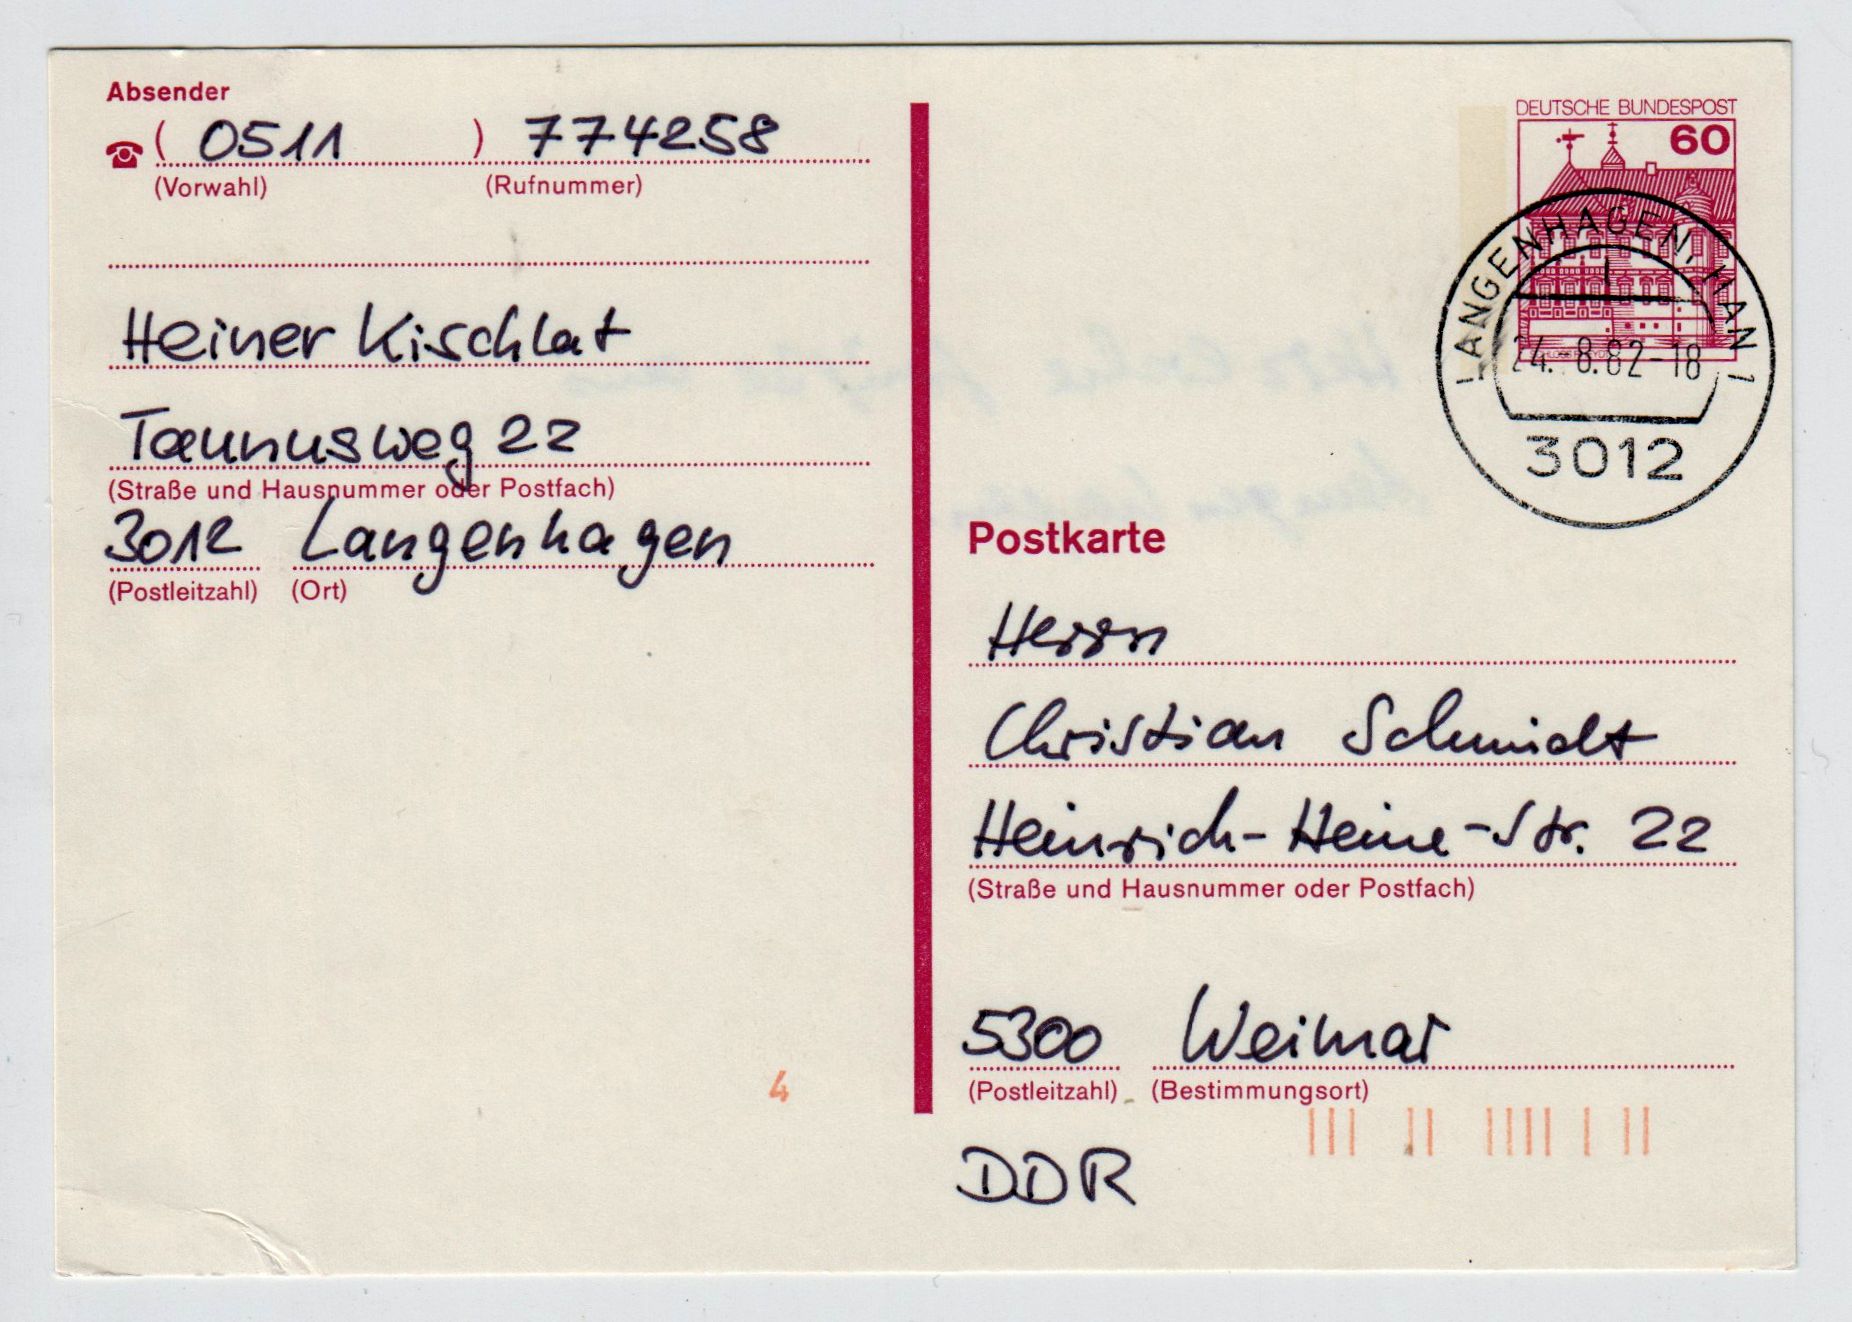 Absender
( 0511 ) 774258
(Vorwahl) (Rufnummer)
Heiner Kischlat
Taunusweg 22
(Straße und Hausnummer oder Postfach)
3012 Langenhagen
(Postleitzahl) (Ort)
4
DEUTSCHE BUNDESPOST
60
LANGENHAGEN, HAN 1
24.-8.82-18
3012
Postkarte
Herrn
Christian Schmidt
Heinrich-Heine-Str. 22
(Straße und Hausnummer oder Postfach)
5300 Weimar
(Postleitzahl) (Bestimmungsort)
DDR